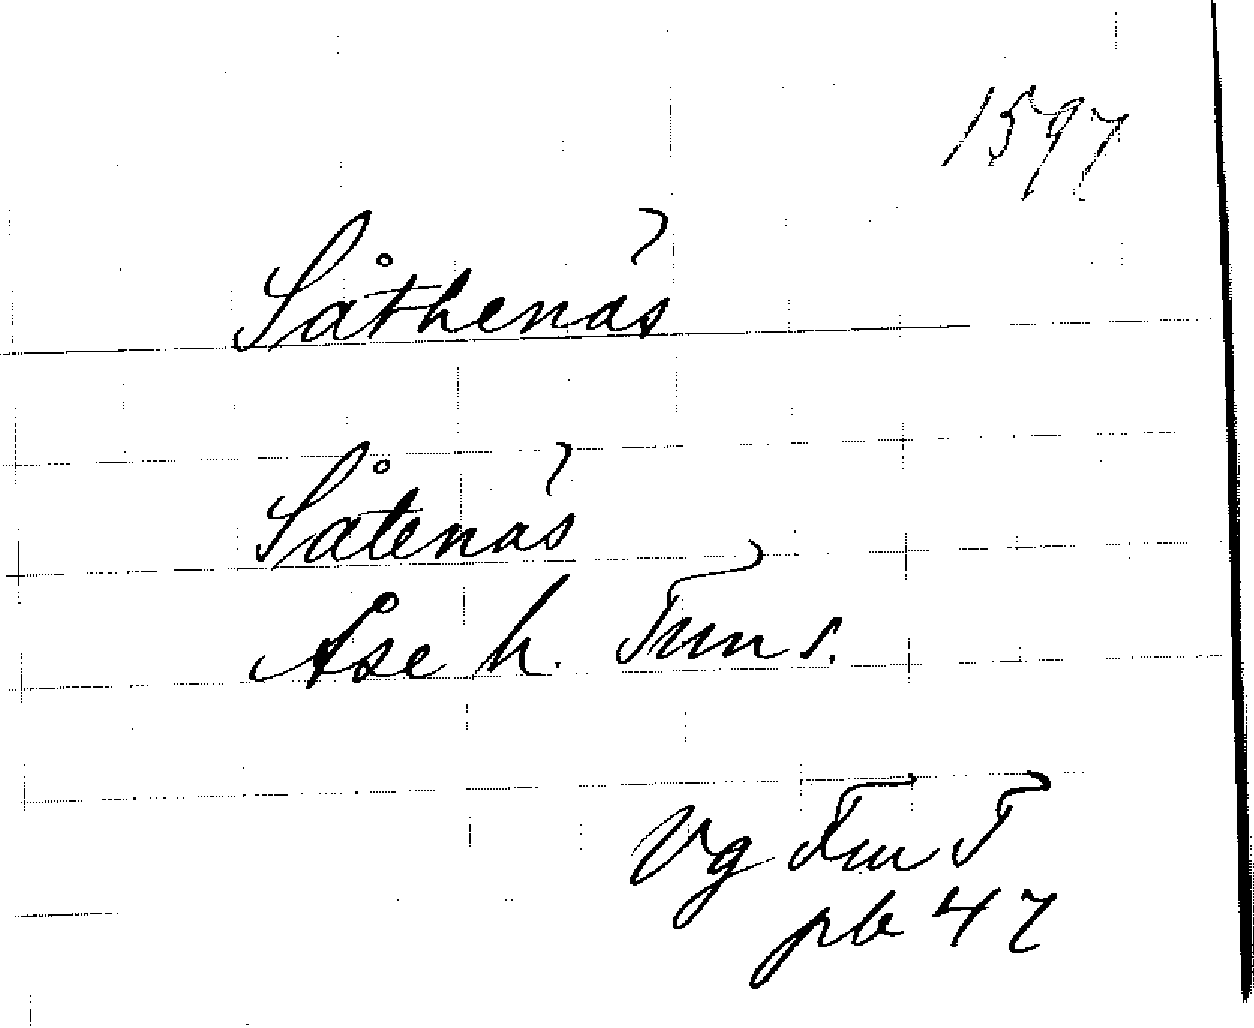 1597
Såthenäs
Såtenäs
Åse h. Tun s.
Vg Fm T
pb 47